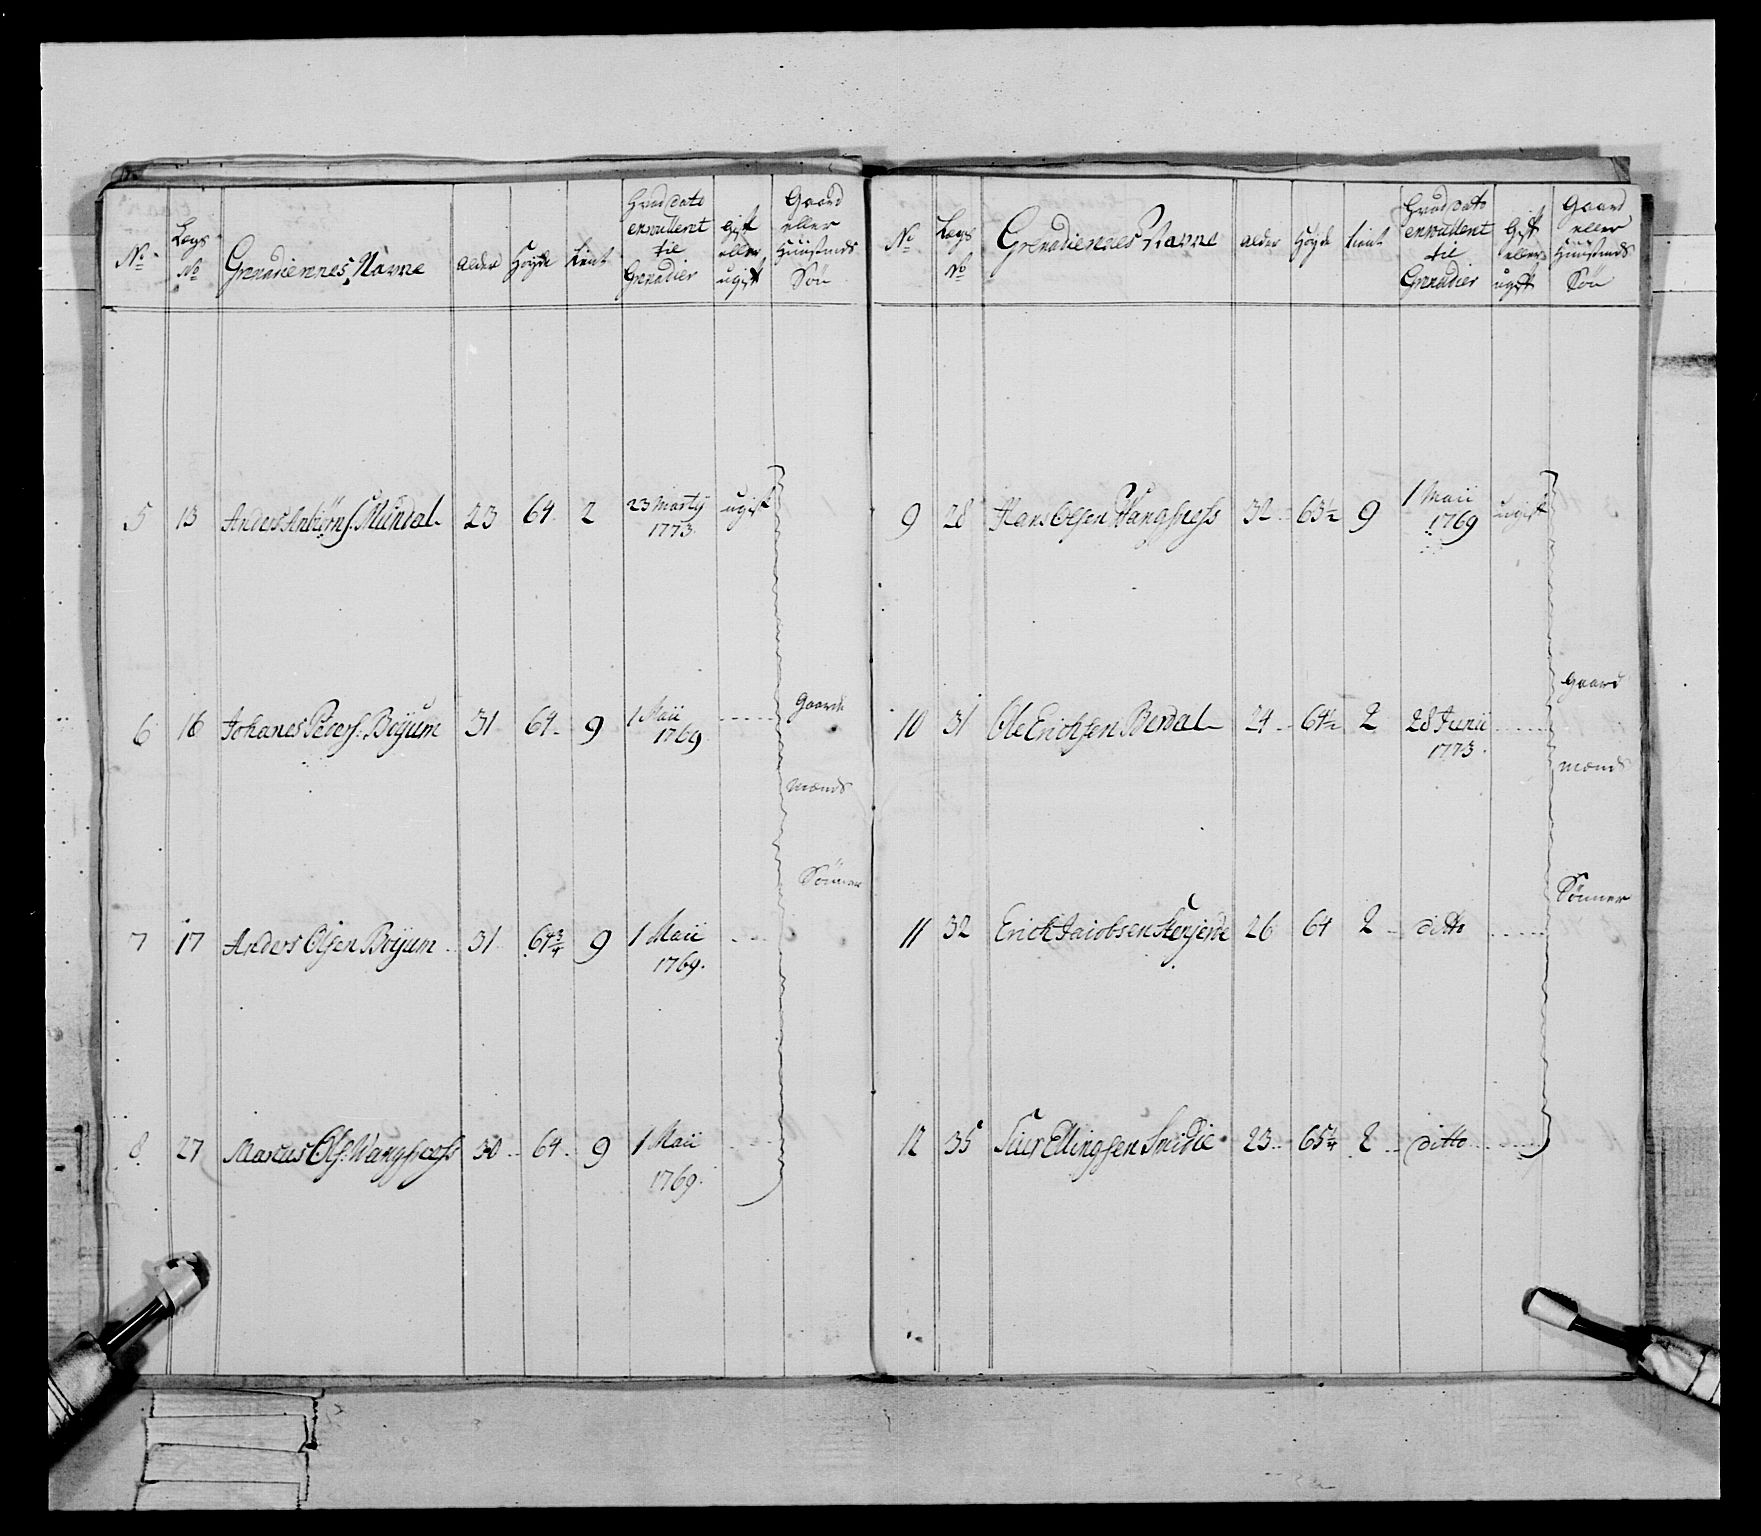 No Legs No Grenadiernes Navne Alder Höyde tient Hvad dato enrullent til Grenadier Gift eller ugift Gaard eller Huusmands Sön
5 13 Anders Anbiörns. Mundal 23 64 2 23 Marty 1773. ugift
6 16 Johanes Peders. Böyum 31 64 9 1 Maii 1769 Gaard
mænds
Sönner
7 17 Anders Olsen Böyum 31 64 3/4 9 1 Maii 1769.
8 27 Marcus Ols. Wangsness 30 64 9 1 Maii 1769.
No Legs No Grenadiernes Navne Alder Höyde tient Hvad dato enrullent til Grenadier Gift eller ugift Gaard eller Huusmands Sön
9 28 Hans Olsen Wangsness 32 63 1/2 9 1 Maii 1769 ugift
Gaard
10 31 Ole Erichsen Berdal 24 64 1/2 2 28 Junii 1773.
mænds
Sönner
11 32 Erich Jacobsen 26 64 2 ditto
12 35 Siur Ellingsen 23 65 1/4 2 ditto